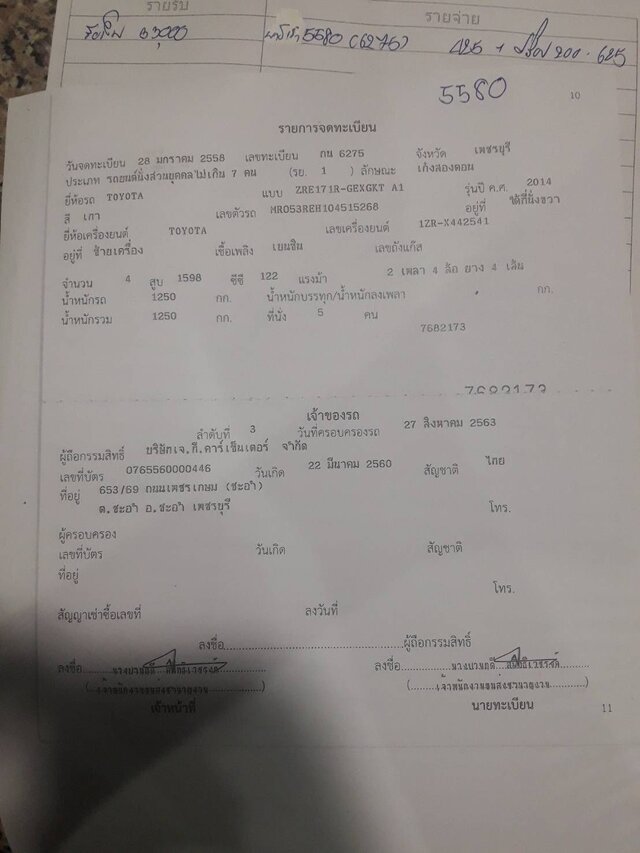 รายรับ รายจ่าย
5580 (6275) 425 + 200 - 625
5580
10
รายการจดทะเบียน
วันจดทะเบียน 28 มกราคม 2558 เลขทะเบียน กน 6275 จังหวัด เพชรบุรี
ประเภท รถยนต์นั่งส่วนบุคคลไม่เกิน 7 คน (รย. 1 ) ลักษณะ เก๋งสองตอน
ยี่ห้อรถ TOYOTA แบบ ZRE171R-GEXGKT A1 รุ่นปี ค.ศ. 2014
สี เทา เลขตัวรถ MR053REH104515268 อยู่ที่ ใต้ที่นั่งขวา
ยี่ห้อเครื่องยนต์ TOYOTA เลขเครื่องยนต์ 1ZR-X442541
อยู่ที่ ซ้ายเครื่อง เชื้อเพลิง เบนซิน เลขถังแก๊ส
จำนวน 4 สูบ 1598 ซีซี 122 แรงม้า 2 เพลา 4 ล้อ ยาง 4 เส้น
น้ำหนักรถ 1250 กก. น้ำหนักบรรทุก/น้ำหนักลงเพลา กก.
น้ำหนักรวม 1250 กก. ที่นั่ง 5 คน
7682173
7682173
เจ้าของรถ
ลำดับที่ 3 วันที่ครอบครองรถ 27 สิงหาคม 2563
ผู้ถือกรรมสิทธิ์ บริษัทเจ.กี.คาร์เซ็นเตอร์ จำกัด
เลขที่บัตร 0765560000446 วันเกิด 22 มีนาคม 2560 สัญชาติ ไทย
ที่อยู่ 653/69 ถนนเพชรเกษม (ชะอำ)
ต.ชะอำ อ.ชะอำ เพชรบุรี โทร.
ผู้ครอบครอง
เลขที่บัตร วันเกิด สัญชาติ
ที่อยู่
โทร.
สัญญาเช่าซื้อเลขที่ ลงวันที่
ลงชื่อ ผู้ถือกรรมสิทธิ์
ลงชื่อ ลงชื่อ
(เจ้าพนักงานขนส่งชำนาญงาน) (เจ้าพนักงานขนส่งชำนาญงาน)
เจ้าหน้าที่ นายทะเบียน
11